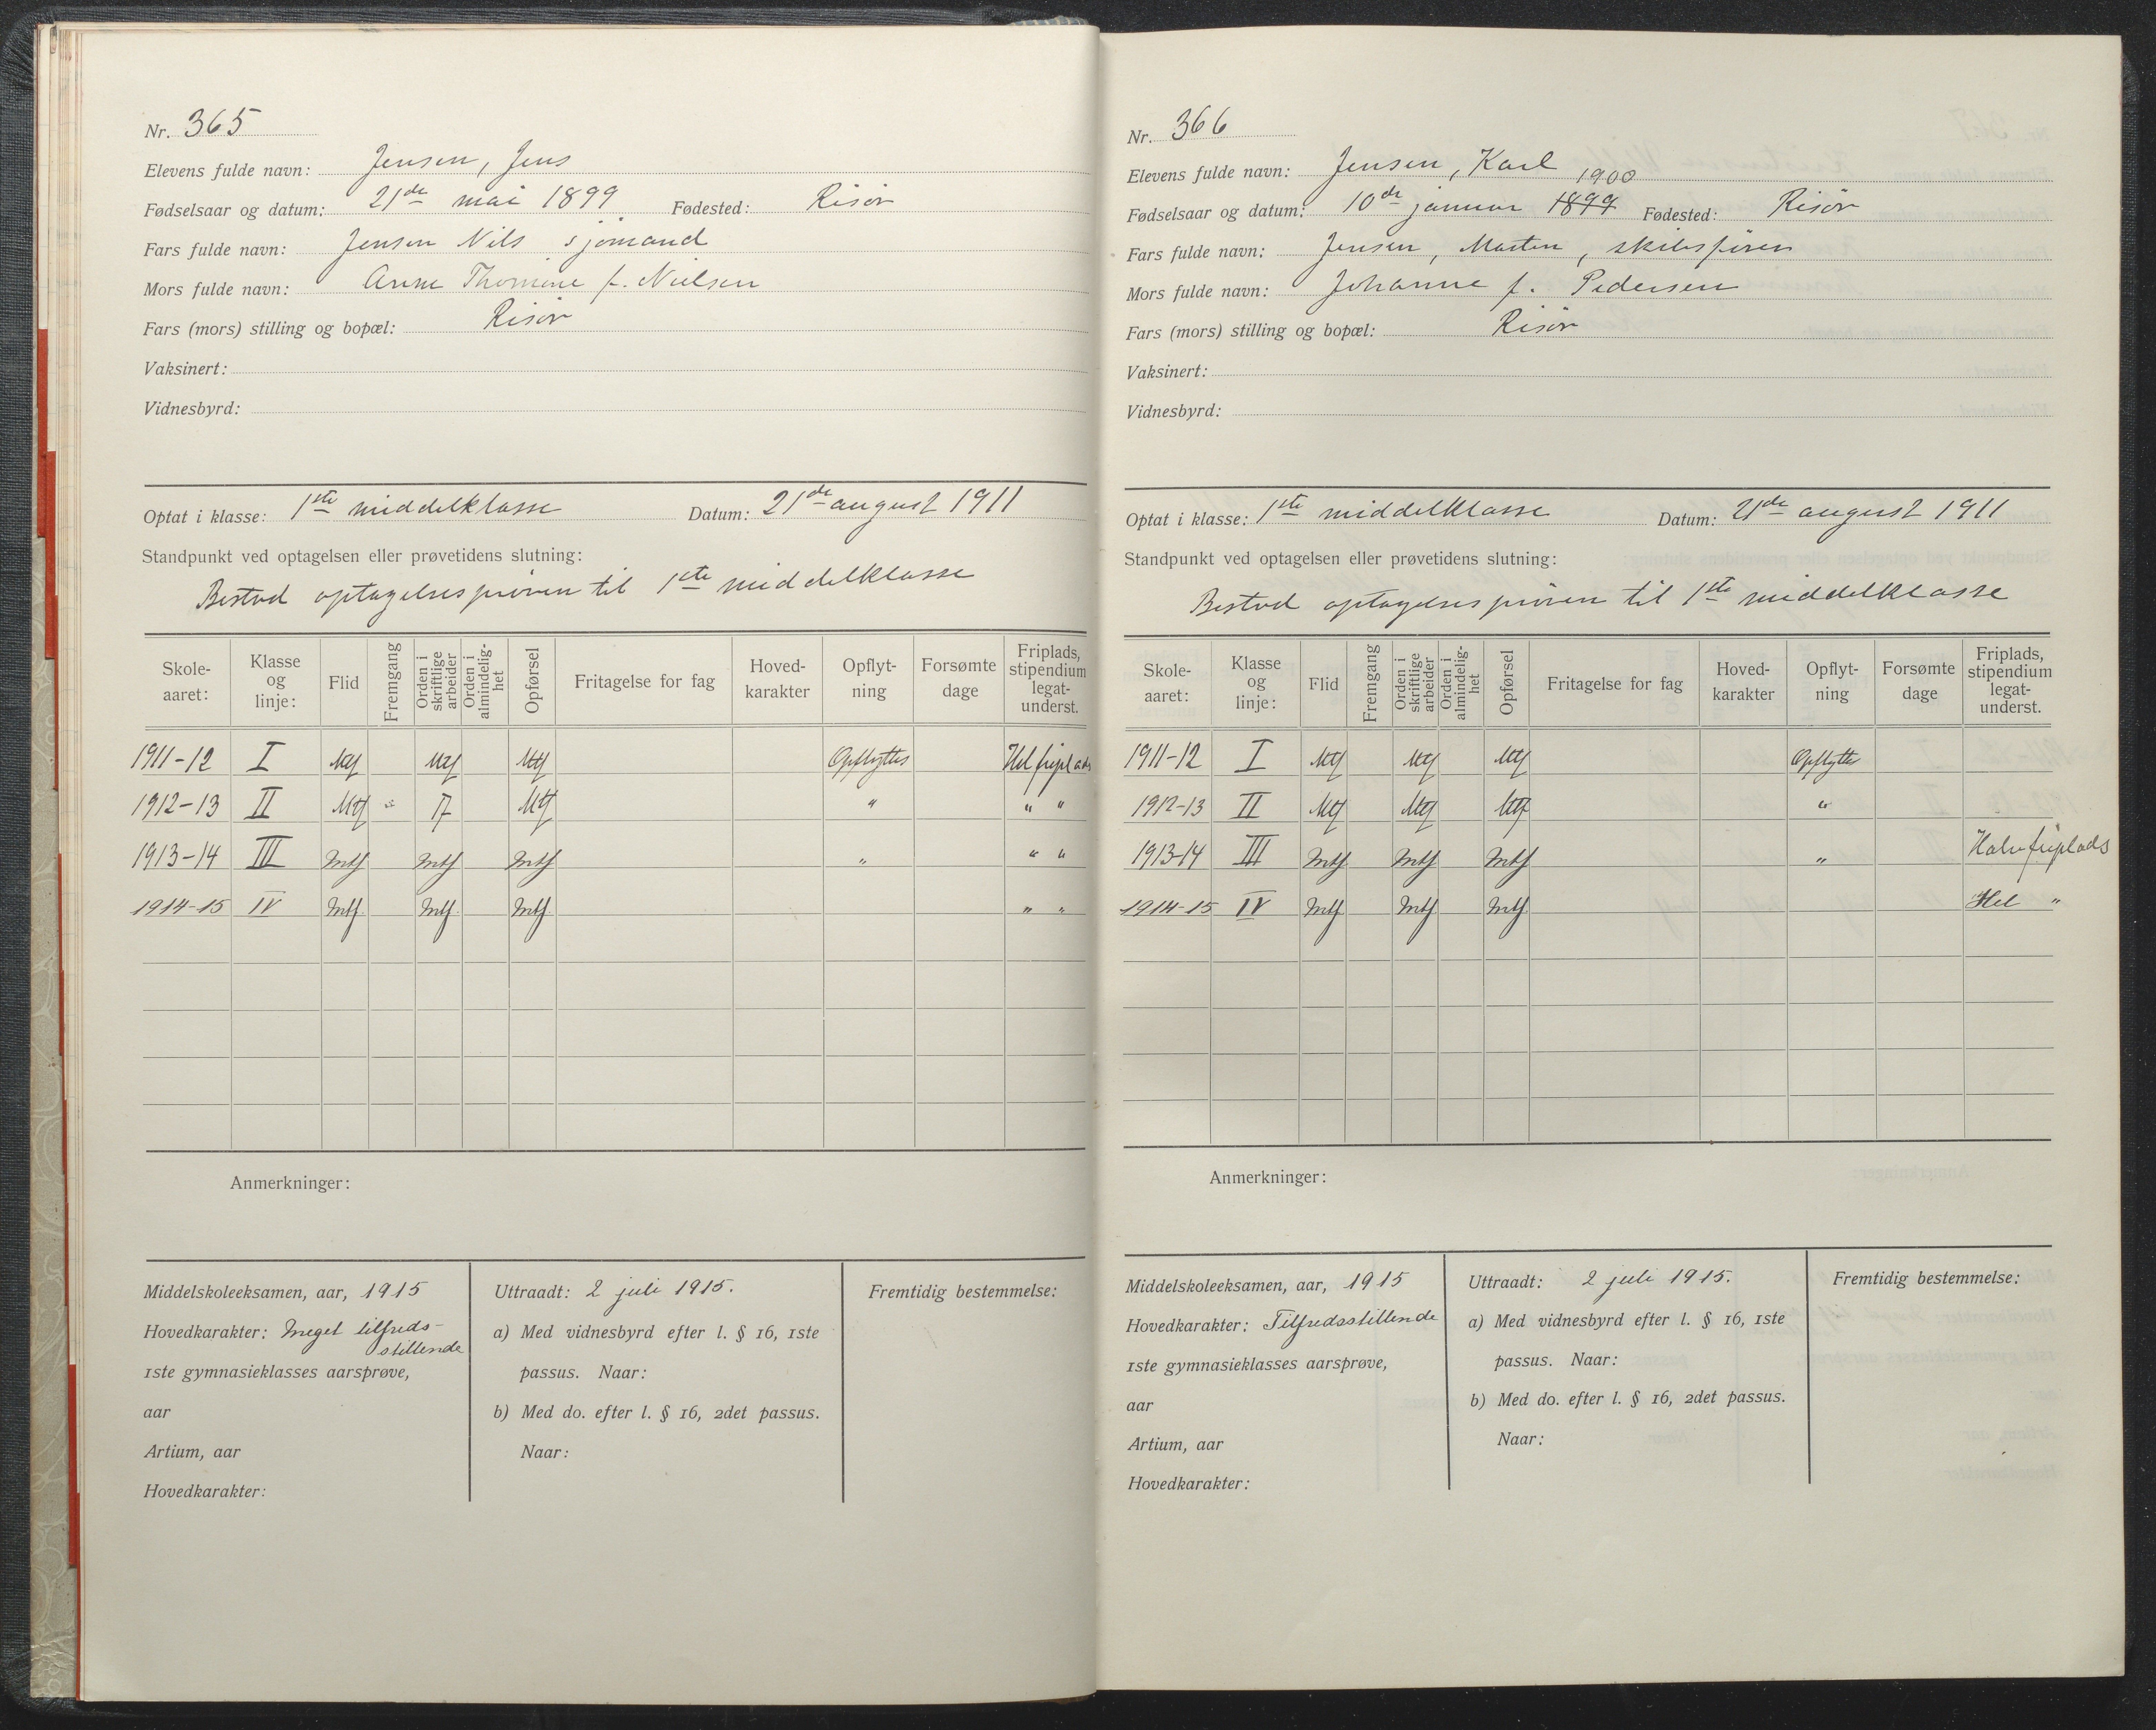 Nr. 365
Elevens fulde navn: Jensen, Jens
Fødselsaar og datum: 21de mai 1899 Fødested: Risör
Fars fulde navn: Jensen Nils sjömand
Mors fulde navn: Anne Thomine f. Nielsen
Fars (mors) stilling og bopæl: Risör
Vaksinert:
Vidnesbyrd:
Optat i klasse: 1ste middelklasse Datum: 21de august 1911
Standpunkt ved optagelsen eller prøvetidens slutning:
Bestod optagelsespröven til 1ste middelklasse
Skole-aaret: Klasse og linje: Flid Fremgang Orden i skriftlige arbeider Orden i almindelig-het Opførsel Fritagelse for fag Hoved-karakter Opflyt-ning Forsømte dage Friplads, stipendium legat-underst.
1911-12 I Mtf Mtf Mtf Opflyttes Hel friplads
1912-13 II Mtf " Tf Mtf " " "
1913-14 III Mtf Mtf Mtf " " "
1914-15 IV Mtf. Mtf. Mtf. " "
Anmerkninger:
Middelskoleeksamen, aar, 1915
Hovedkarakter: Meget tilfreds-
stillende
1ste gymnasieklasses aarsprøve,
aar
Artium, aar
Hovedkarakter:
Uttraadt: 2 juli 1915.
a) Med vidnesbyrd efter l. § 16, 1ste
passus. Naar:
b) Med do. efter l. § 16, 2det passus.
Naar:
Fremtidig bestemmelse:
Nr. 366
Elevens fulde navn: Jensen, Karl
1900
Fødselsaar og datum: 10de januar 1899 Fødested: Risör
Fars fulde navn: Jensen, Martin, skibsförer
Mors fulde navn: Johanne f. Pedersen
Fars (mors) stilling og bopæl: Risör
Vaksinert:
Vidnesbyrd:
Optat i klasse: 1ste middelklasse Datum: 21de august 1911
Standpunkt ved optagelsen eller prøvetidens slutning:
Bestod optagelsespröven til 1ste middelklasse
Skole-aaret: Klasse og linje: Flid Fremgang Orden i skriftlige arbeider Orden i almindelig-het Opførsel Fritagelse for fag Hoved-karakter Opflyt-ning Forsømte dage Friplads, stipendium legat-underst.
1911-12 I Mtf Mtf Mtf Opflyttes
1912-13 II Mtf Mtf Mtf "
1913-14 III Mtf. Mtf Mtf " Halv friplads
1914-15 IV Mtf Mtf Mtf Hel "
Anmerkninger:
Middelskoleeksamen, aar, 1915
Hovedkarakter: Tilfredsstillende
1ste gymnasieklasses aarsprøve,
aar
Artium, aar
Hovedkarakter:
Uttraadt: 2 juli 1915.
a) Med vidnesbyrd efter l. § 16, 1ste
passus. Naar:
b) Med do. efter l. § 16, 2det passus.
Naar:
Fremtidig bestemmelse: